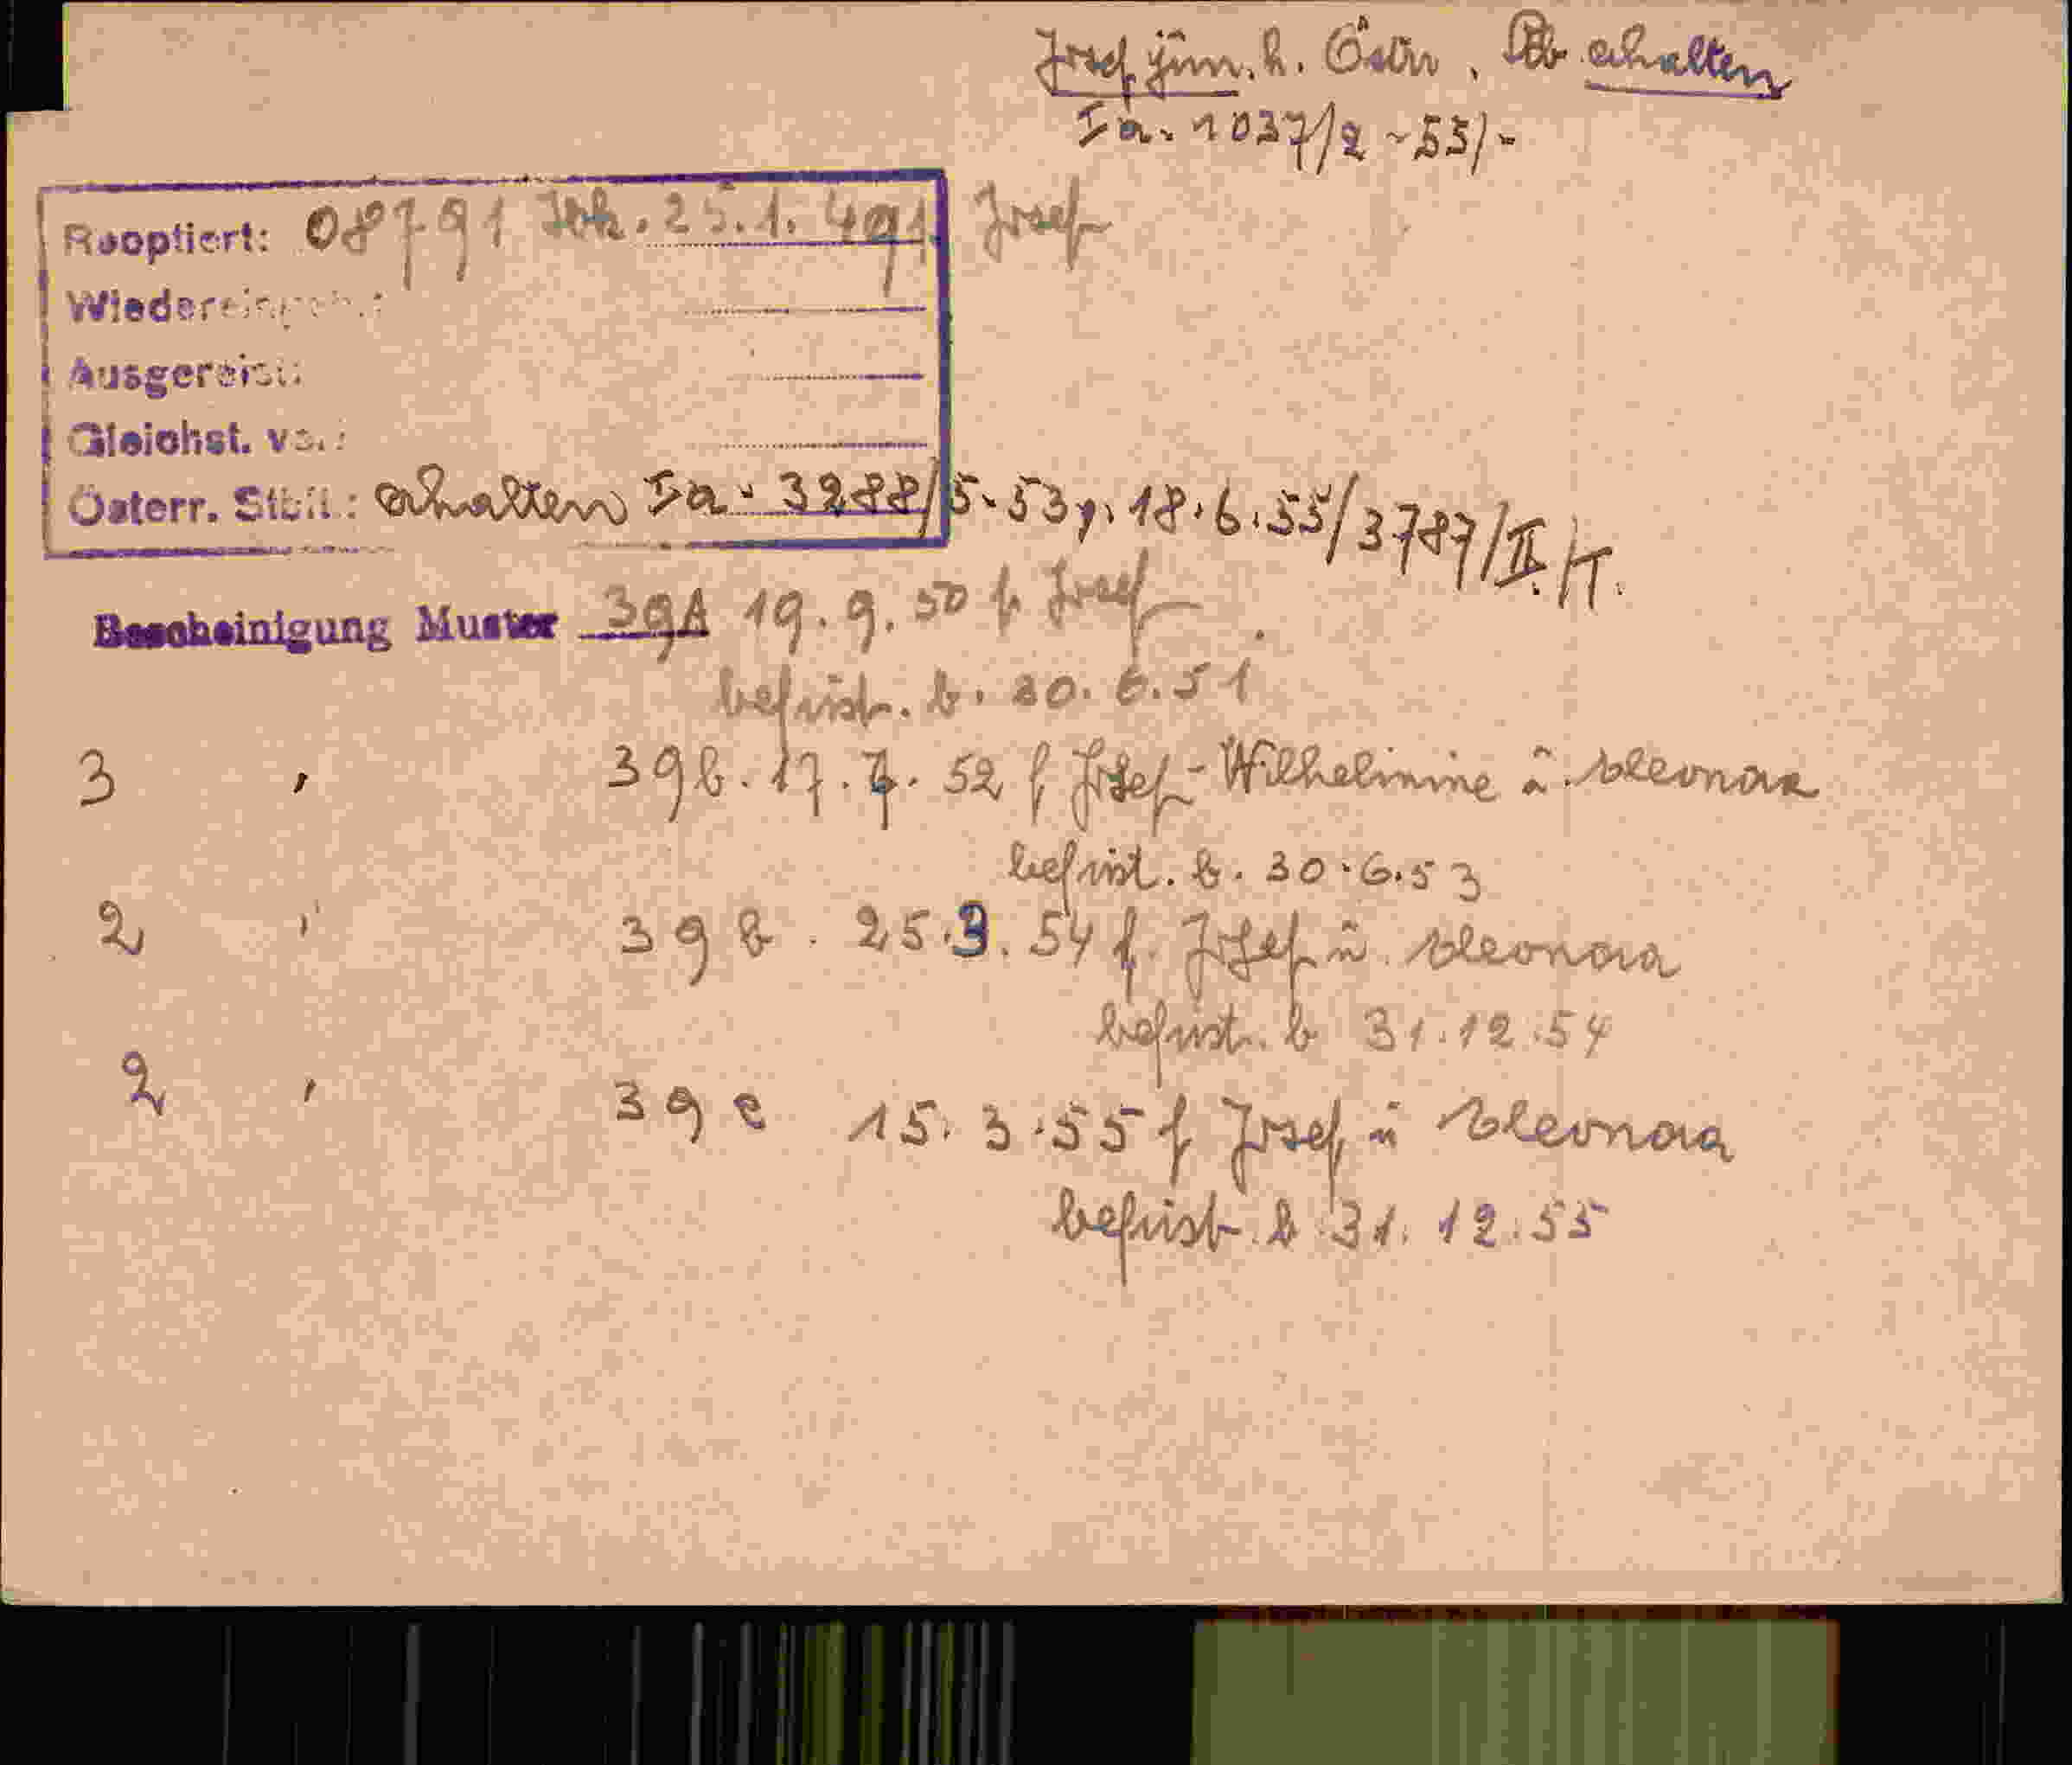 Josef jün. h. Östr. Stb erhalten
Ia. 1037/2-53/-
Rooptiert: 08791 25.1.49 f. Josef
Wiedereingeb.:
Ausgereist:
Gleichst. v.:
Österr. Stbft.: erhalten Ia. 3288/5-53, 18.6.55/3787/II./T.
Bescheinigung Muster 39A 19.9.50 f Josef
befrist. b. 30.6.51
3 " 39b. 17.7.52 f Josef-Wilhelmine ü. Eleonora
befrist. b. 30.6.53
2 " 39b. 25.3.54 f. Josef ü. Eleonora
befrist. b 31.12.54
2 " 39c 15.3.55 f Josef ü Eleonora
befrist. b 31.12.55